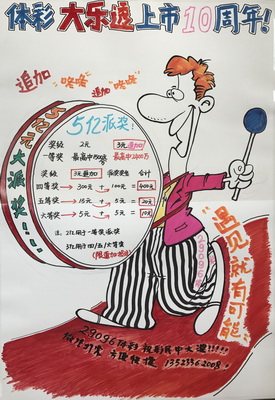 体彩大乐透上市10周年！
追加 “咚咚”
追加 “咚咚”
大派奖！！！
5亿派奖！
奖级 2元 3元追加
一等奖 最高中1500万 最高中2400万
奖级 3元追加 派奖奖金 合计
四等奖→300元+100元=400元
五等奖→15元+5元=20元
六等奖→5元+5元=10元
注：2亿用于一等奖派奖
3亿用于四/五/六等奖
(限追加投注)
“遇见”就有可能
29096
29096体彩祝彩民中大奖！！！！！
微信打票 方便快捷 13523362008